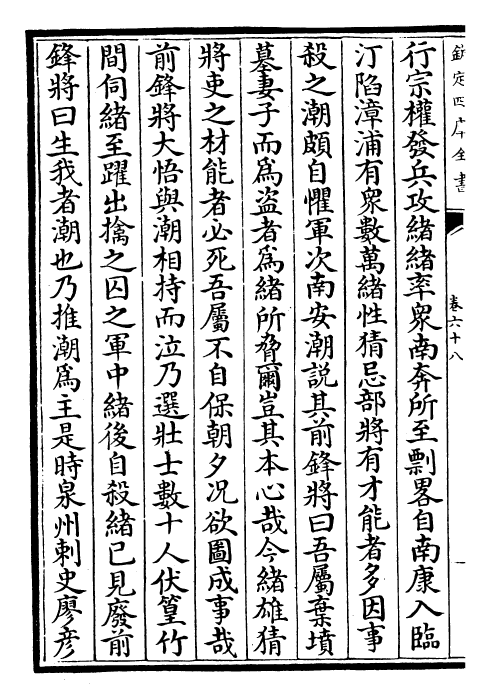 欽定四庫全書
卷六十八
一
行宗權發兵攻緒緒率衆南奔所至剽畧自南康入臨
汀陷漳浦有衆數萬緒性猜忌部將有才能者多因事
殺之潮頗自懼軍次南安潮説其前鋒將曰吾屬棄墳
墓妻子而爲盗者爲緒所脅爾豈其本心哉今緒雄猜
將吏之材能者必死吾屬不自保朝夕况欲圖成事哉
前鋒將大悟與潮相持而泣乃選壯士數十人伏篁竹
間伺緒至躍出擒之囚之軍中緒後自殺緒已見廢前
鋒將曰生我者潮也乃推潮爲主是時泉州刺史廖彦